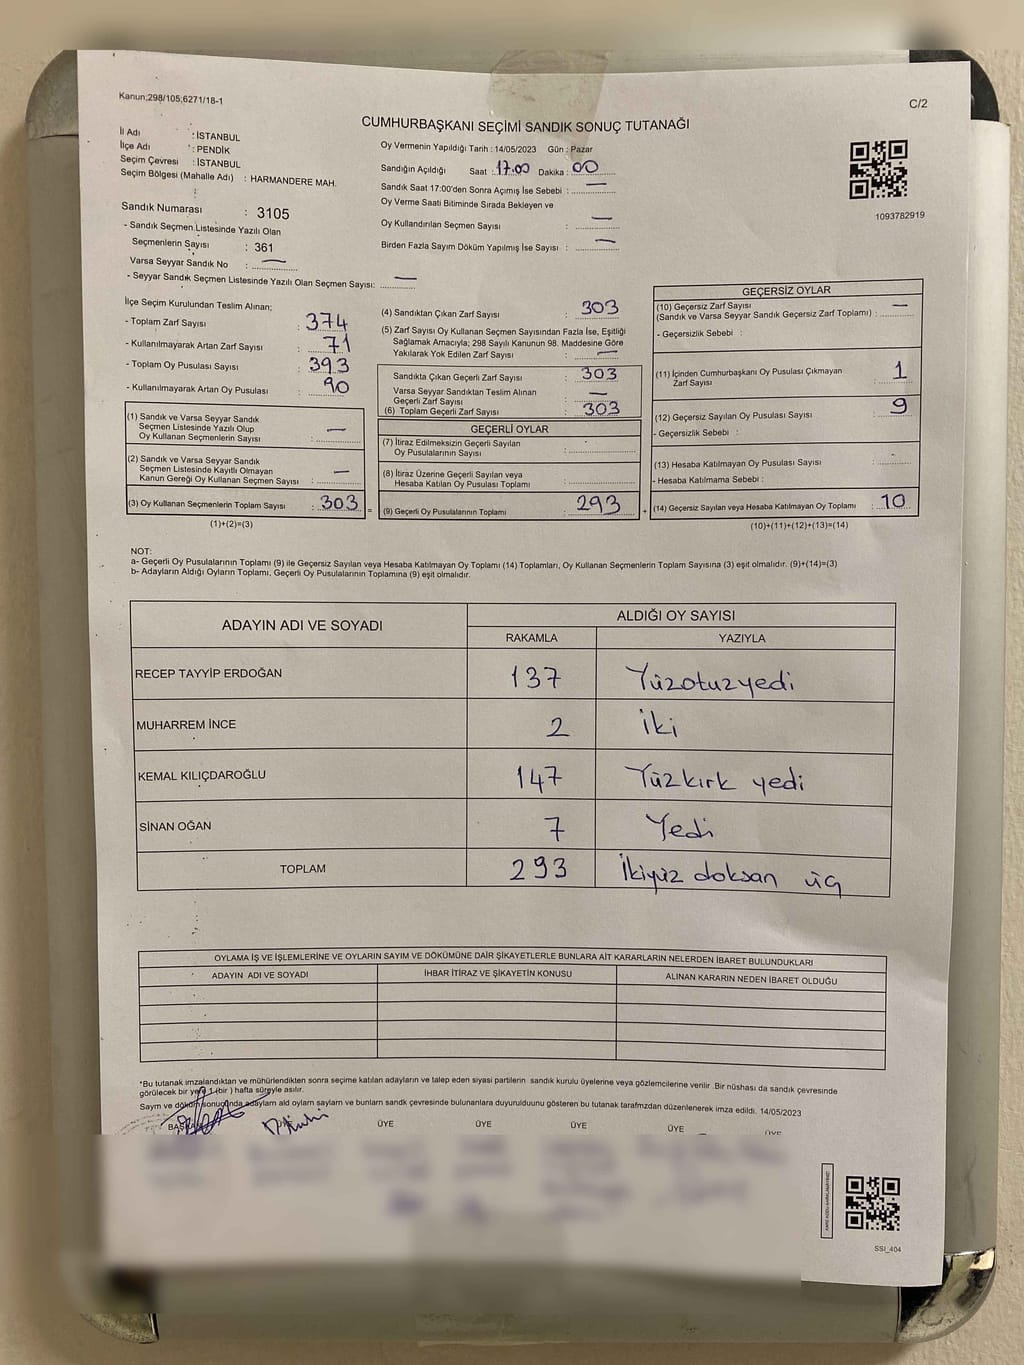 Kanun;298/105,6271/18-1
C/2
CUMHURBAŞKANI SEÇİMİ SANDIK SONUÇ TUTANAĞI
İl Adı : İSTANBUL
İlçe Adı : PENDİK
Seçim Çevresi : İSTANBUL
Seçim Bölgesi (Mahalle Adı) : HARMANDERE MAH.
:
Sandık Numarası : 3105
- Sandık Seçmen Listesinde Yazılı Olan
Seçmenlerin Sayısı : 361
Varsa Seyyar Sandık No : —
- Seyyar Sandık Seçmen Listesinde Yazılı Olan Seçmen Sayısı: —
Oy Vermenin Yapıldığı Tarih : 14/05/2023 Gün : Pazar
Sandığın Açıldığı Saat : 17.00 Dakika : 00
Sandık Saat 17:00'den Sonra Açımış İse Sebebi : —
Oy Verme Saati Bitiminde Sırada Bekleyen ve
Oy Kullandırılan Seçmen Sayısı : —
Birden Fazla Sayım Döküm Yapılmış İse Sayısı : —
1093782919
İlçe Seçim Kurulundan Teslim Alınan;
- Toplam Zarf Sayısı : 374
- Kullanılmayarak Artan Zarf Sayısı : 71
- Toplam Oy Pusulası Sayısı : 393
- Kullanılmayarak Artan Oy Pusulası : 90
(1) Sandık ve Varsa Seyyar Sandık
Seçmen Listesinde Yazılı Olup
Oy Kullanan Seçmenlerin Sayısı : —
(2) Sandık ve Varsa Seyyar Sandık
Seçmen Listesinde Kayıtlı Olmayan
Kanun Gereği Oy Kullanan Seçmen Sayısı : —
(3) Oy Kullanan Seçmenlerin Toplam Sayısı : 303
(1)+(2)=(3)
=
(4) Sandıktan Çıkan Zarf Sayısı : 303
(5) Zarf Sayısı Oy Kullanan Seçmen Sayısından Fazla İse, Eşitliği
Sağlamak Amacıyla; 298 Sayılı Kanunun 98. Maddesine Göre
Yakılarak Yok Edilen Zarf Sayısı : —
Sandıkta Çıkan Geçerli Zarf Sayısı : 303
Varsa Seyyar Sandıktan Teslim Alınan
Geçerli Zarf Sayısı : —
(6) Toplam Geçerli Zarf Sayısı : 303
GEÇERLİ OYLAR
(7) İtiraz Edilmeksizin Geçerli Sayılan
Oy Pusulalarının Sayısı :
(8) İtiraz Üzerine Geçerli Sayılan veya
Hesaba Katılan Oy Pusulası Toplamı :
(9) Geçerli Oy Pusulalarının Toplamı : 293
+
GEÇERSİZ OYLAR
(10) Geçersiz Zarf Sayısı
(Sandık ve Varsa Seyyar Sandık Geçersiz Zarf Toplamı) : —
- Geçersizlik Sebebi :
(11) İçinden Cumhurbaşkanı Oy Pusulası Çıkmayan
Zarf Sayısı : 1
(12) Geçersiz Sayılan Oy Pusulası Sayısı : 9
- Geçersizlik Sebebi :
(13) Hesaba Katılmayan Oy Pusulası Sayısı :
- Hesaba Katılmama Sebebi :
(14) Geçersiz Sayılan veya Hesaba Katılmayan Oy Toplamı : 10
(10)+(11)+(12)+(13)=(14)
NOT:
a- Geçerli Oy Pusulalarının Toplamı (9) ile Geçersiz Sayılan veya Hesaba Katılmayan Oy Toplamı (14) Toplamları, Oy Kullanan Seçmenlerin Toplam Sayısına (3) eşit olmalıdır. (9)+(14)=(3)
b- Adayların Aldığı Oyların Toplamı, Geçerli Oy Pusulalarının Toplamına (9) eşit olmalıdır.
ADAYIN ADI VE SOYADI ALDIĞI OY SAYISI
RAKAMLA YAZIYLA
RECEP TAYYİP ERDOĞAN 137 Yüzotuzyedi
MUHARREM İNCE 2 İki
KEMAL KILIÇDAROĞLU 147 Yüzkırk yedi
SİNAN OĞAN 7 Yedi
TOPLAM 293 İkiyüz doksan üç
OYLAMA İŞ VE İŞLEMLERİNE VE OYLARIN SAYIM VE DÖKÜMÜNE DAİR ŞİKAYETLERLE BUNLARA AİT KARARLARIN NELERDEN İBARET BULUNDUKLARI
ADAYIN ADI VE SOYADI İHBAR İTİRAZ VE ŞİKAYETİN KONUSU ALINAN KARARIN NEDEN İBARET OLDUĞU
*Bu tutanak imzalandıktan ve mühürlendikten sonra seçime katılan adayların ve talep eden siyasi partilerin sandık kurulu üyelerine veya gözlemcilerine verilir .Bir nüshası da sandık çevresinde
görülecek bir yere 1 (bir ) hafta süreyle asılır.
Sayım ve döküm sonucunda adayların aldığı oyların sayıları ve bunların sandık çevresinde bulunanlara duyurulduunu gösteren bu tutanak tarafımzdan düzenlenerek imza edildi. 14/05/2023
BAŞKAN ÜYE ÜYE ÜYE ÜYE ÜYE
SSI_404